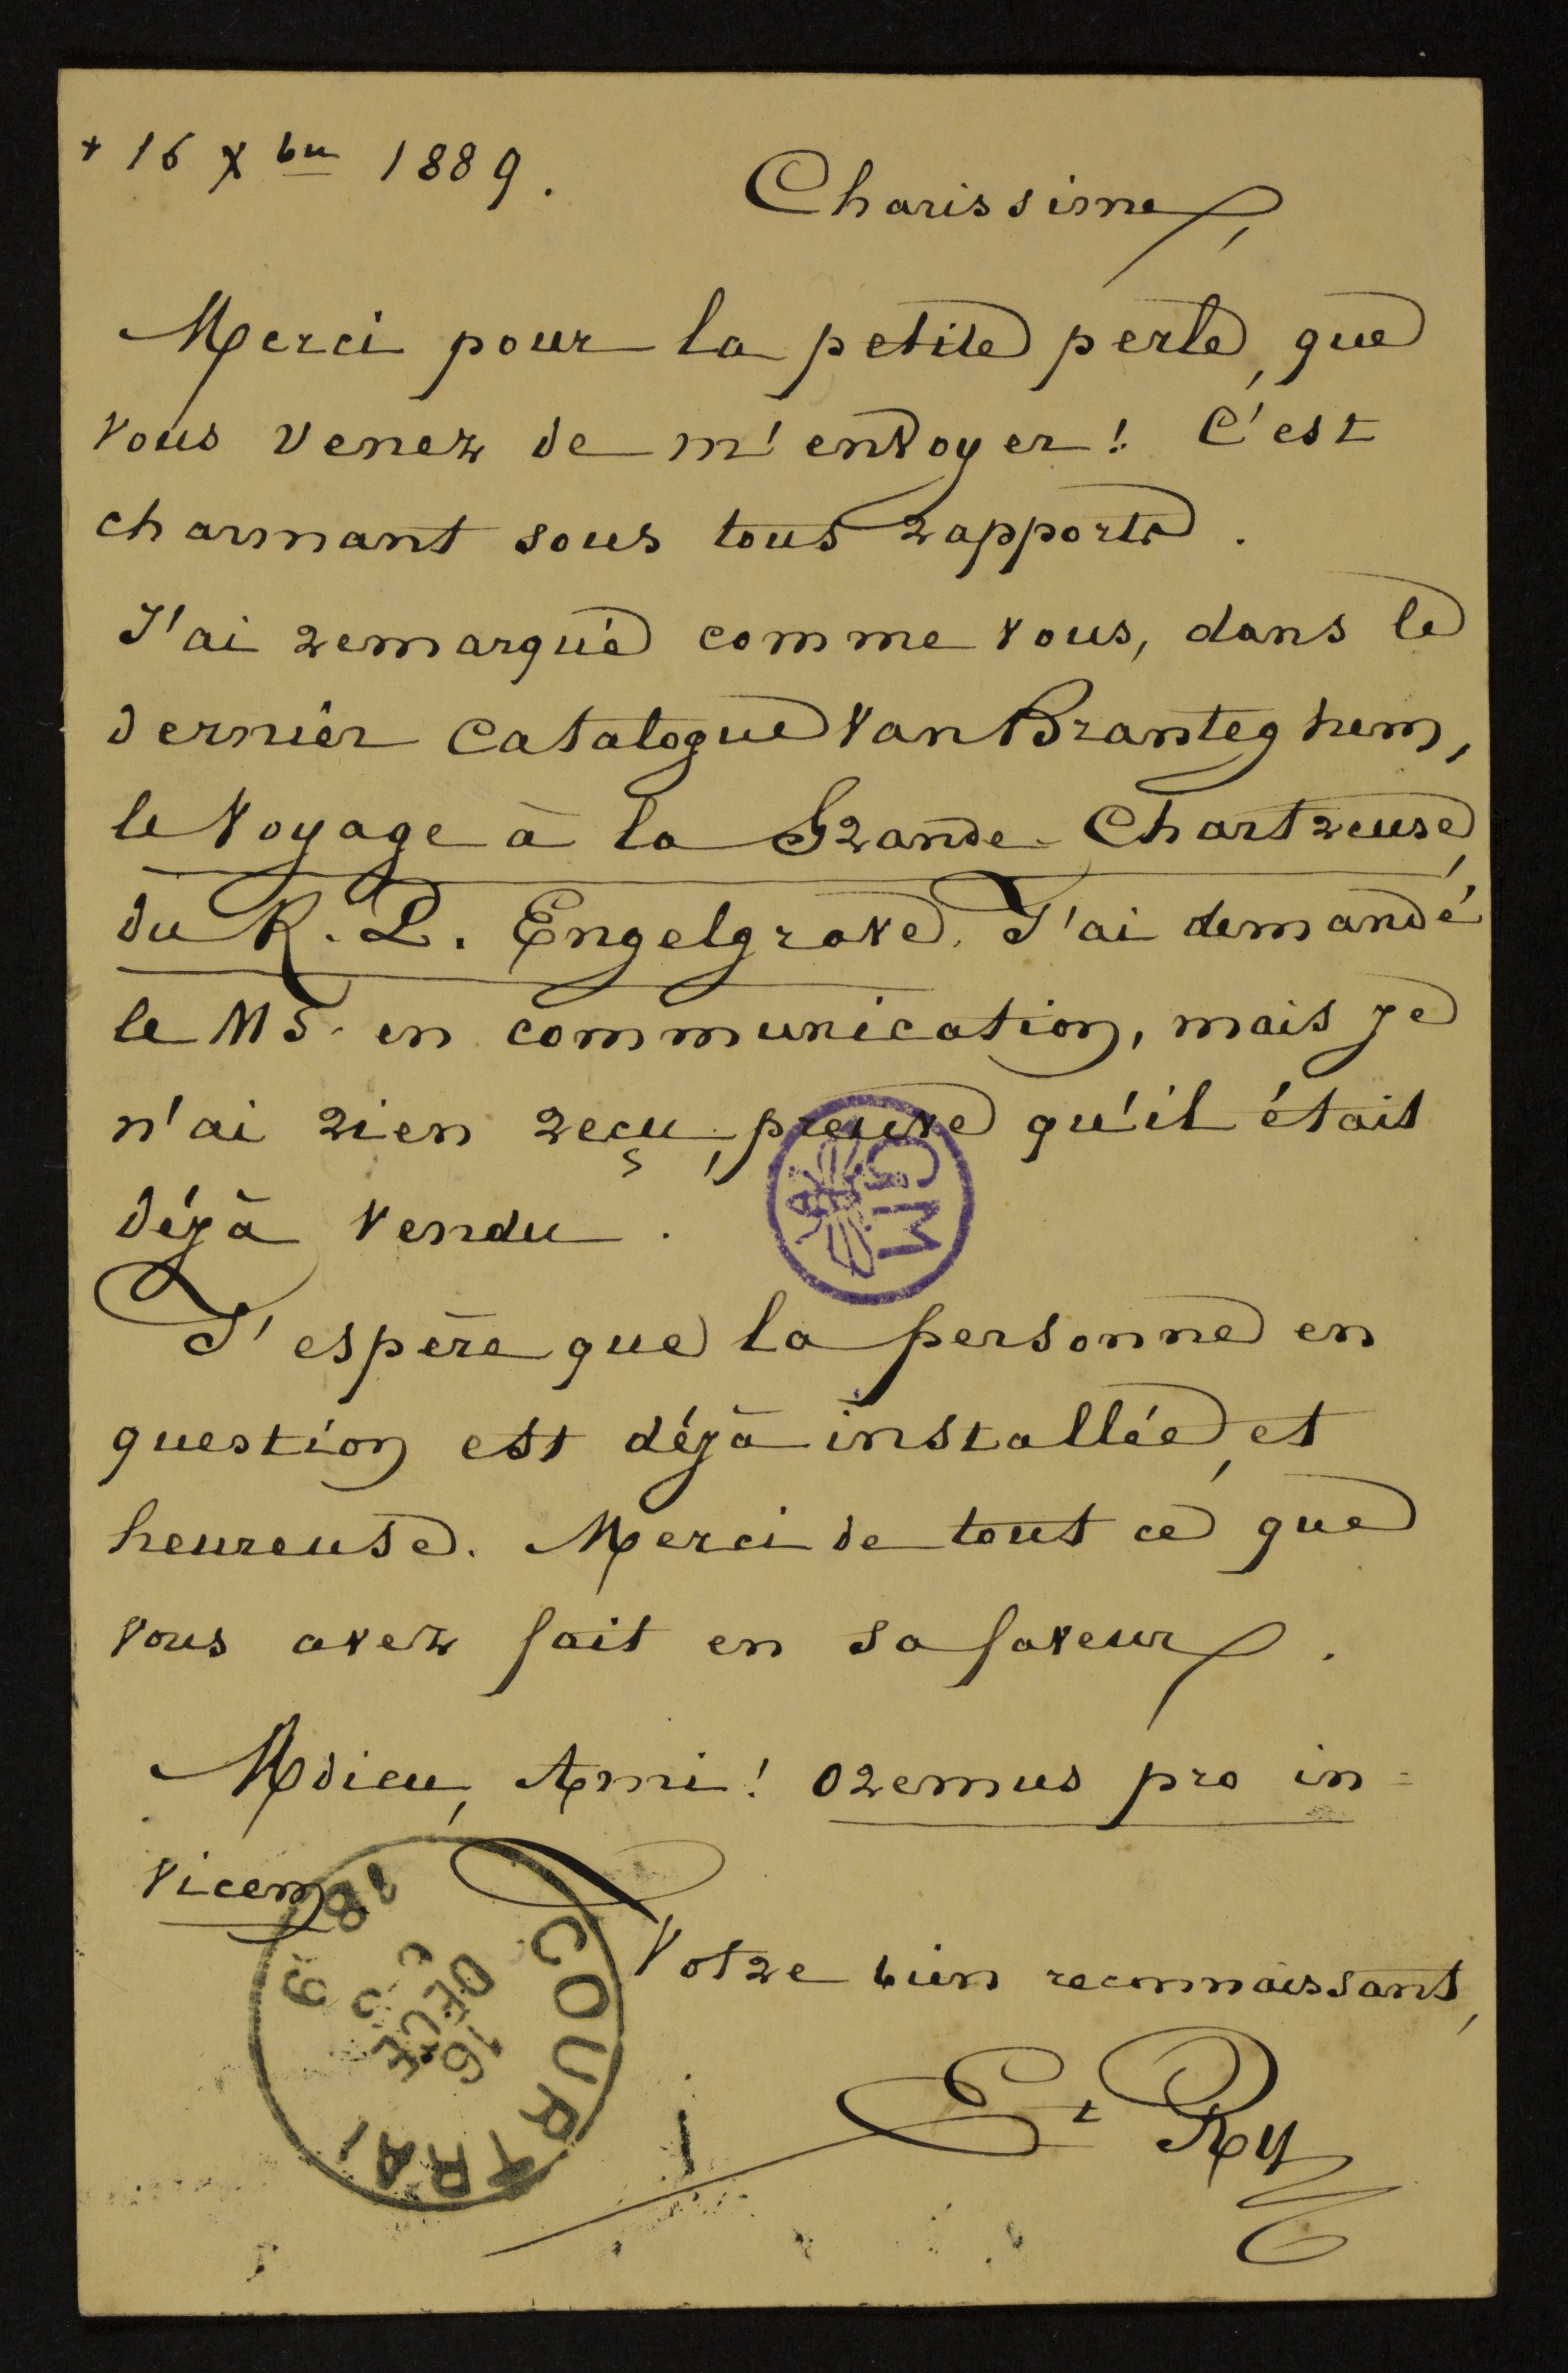 + 16 Xbre 1889.
Charissime,
Merci pour la petite perle, que
vous venez de m'envoyer! C'est
charmant sous tous rapports.
J'ai remarqué comme vous, dans le
dernier Catalogue Van Branteghem,
le Voyage à la Grande-Chartreuse,
du R. P. Engelgrave. J'ai demandé
le MS. en communication, mais je
n'ai rien reçu, preuve qu'il était
déjà vendu.
GM
J'espère que la personne en
question est déjà installée, et
heureuse. Merci de tout ce que
vous avez fait en sa faveur.
Adieu, Ami! Oremus pro in=
vicem
Votre bien reconnaissant,
Et Ry
COURTRAI
16
DECE
1889